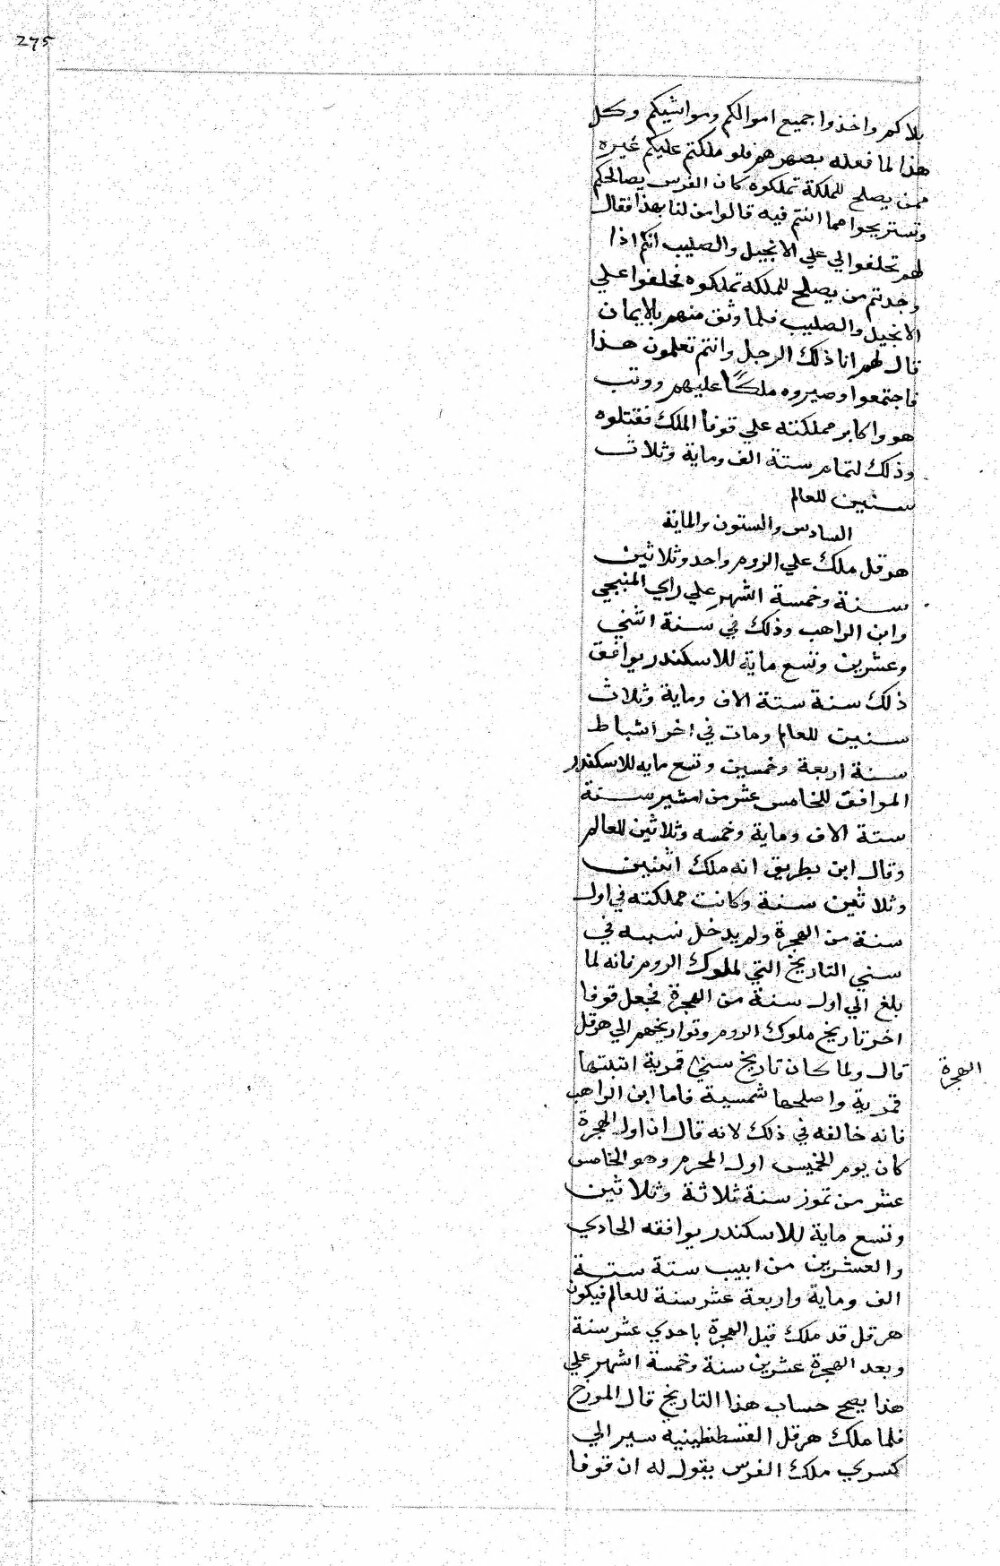 275
بلادكم واخذوا جميع اموالكم ومواشيكم وكل
هذا لما فعله بصهرهم فلو ملكتم عليكم غيره
ممن يصلح للملكة تملكوه كان الفرس يصالحكم
وتستريحوا مما انتم فيه قالوا من لنا بهذا فقال
لهم تحلفوا لي علي الانجيل والصليب انكم اذا
وجدتم من يصلح للملكة تملكوه فحلفوا علي
الانجيل والصليب فلما وثق منهم بالايمان
قال لهم انا ذلك الرجل وانتم تعلمون هذا
فاجتمعوا وصيروه ملكًا عليهم ووثب
هو واكابر مملكته علي قوفا الملك فقتلوه
وذلك لتمام ستة الف وماية وثلاث
سنين للعالم
السادس والستون والماية
هرقل ملك علي الروم واحد وثلاثين
سنة وخمسة اشهر علي راي المنبجي
وابن الراهب وذلك في سنة اثني
وعشرين وتسع ماية للاسكندر يوافق
ذلك سنة ستة الاف وماية وثلاث
سنين للعالم ومات في اخر اشباط
سنة اربعة وخمسين وتسع مايه للاسكندر
الموافق للخامس عشر من امشير سنة
ستة الاف وماية وخمسه وثلاثين للعالم
وقال ابن بطريق انه ملك اثنين
وثلاثين سنة وكانت مملكته في اول
سنة من الهجرة ولم يدخل نسبه في
سني التاريخ التي لملوك الروم فانه لما
بلغ الي اول سنة من الهجرة فجعل قوفا
اخر تاريخ ملوك الروم وتواريخهم الي هرقل
قال ولما كان تاريخ سني قمرية اثبتها
الهجرة
قمرية واصلحها شمسية فاما ابن الراهب
فانه خالفه في ذلك لانه قال ان اول الهجرة
كان يوم الخميس اول المحرم وهو الخامس
عشر من تموز سنة ثلاثة وثلاثين
وتسع ماية للاسكندر يوافقه الحادي
والعشرين من ابيب ستة ستة
الف وماية واربعة عشر سنة للعالم فيكون
هرقل قد ملك قبل الهجرة باحدي عشر سنة
وبعد الهجرة عشرين سنة وخمسة اشهر علي
هذا يصح حساب هذا التاريخ قال المورخ
فلما ملك هرقل القسطنطينية سير الي
كسري ملك الفرس يقول له ان قوفا